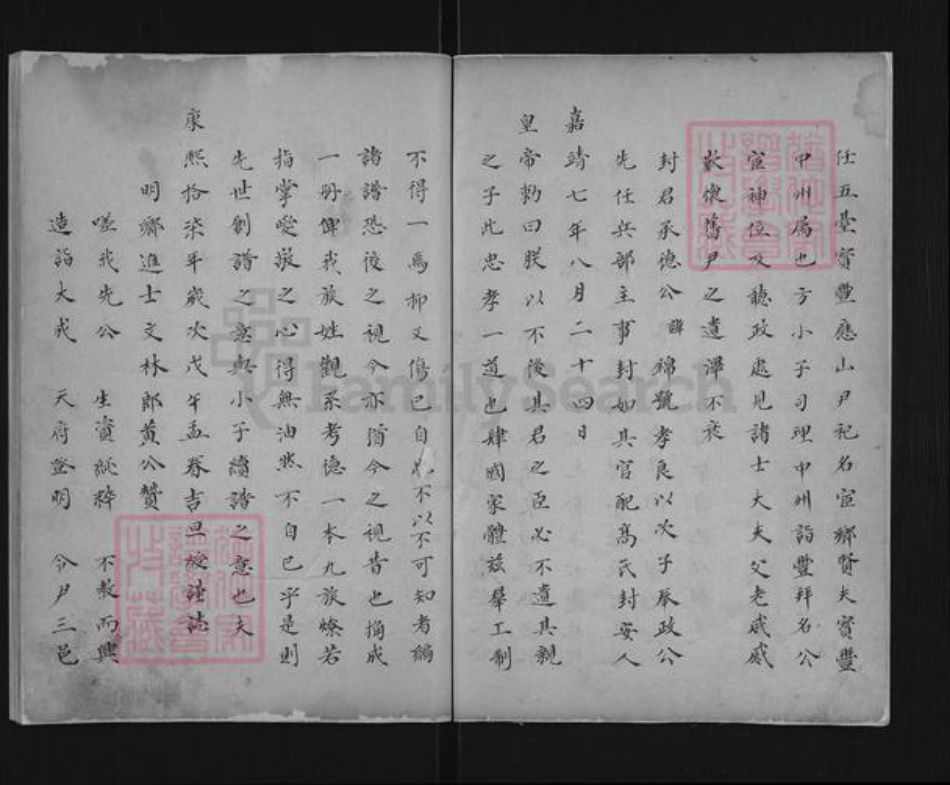 任五臺寶豐應山尹祀名宦鄉賢夫寶豐
中州屬也方小子司理中州詣豐拜名公
宦神位及聽政處見諸士大夫父老咸感
歎懷舊尹之遺澤不衰
封君承德公諱錦號孝良以次子奉政公
先任兵部主事封如其官配高氏封安人
嘉靖七年八月二十四日
皇帝勅曰朕以不後其君之臣必不遺其親
之子此忠孝一道也肆國家體茲舉工制
不得一焉抑又傷已自 不以不可知者編
諸譜恐後之視今亦猶今之視昔也摘成
一冊俾我族姓觀系考德一本九族燎若
指掌愛敬之心得無油然不自已乎是則
先世創譜之意與小子續譜之意也夫
康熙拾柒年歲次戊午孟春吉旦 謹誌
明鄉進士文林郎黃公贊
嗟我先公 生資純粹 不教而興
造詣大成 天府登明 令尹三邑
FamilySearch